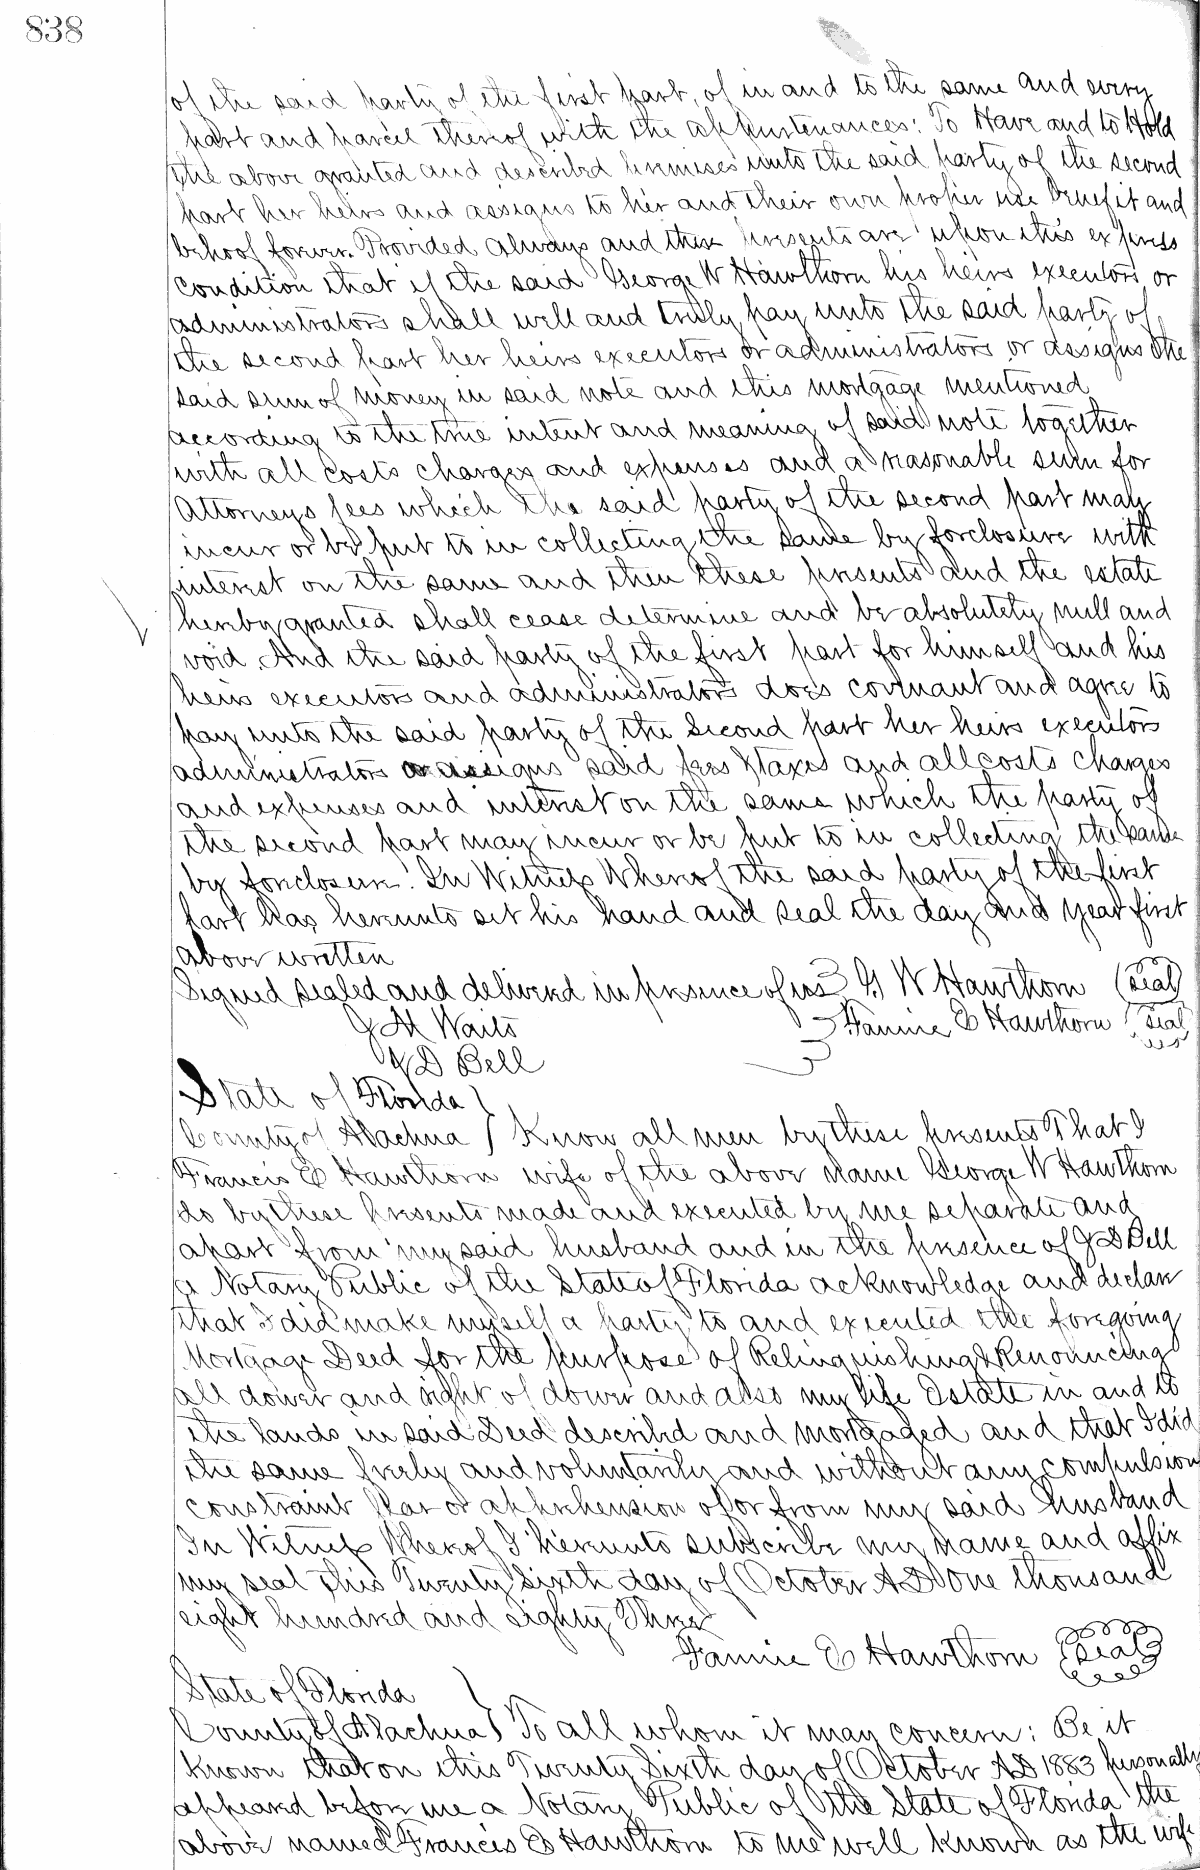 838
of the said party of the first part, of in and to the same and every
part and parcel thereof with the appurtenances: To Have and to Hold
the above granted and described premises unto the said party of the second
part her heirs and assigns to her and their own proper use benefit and
behoof forever. Provided always and these presents are upon this express
condition that if the said George W Hawthorn his heirs executors or
administrators shall well and truly pay unto the said party of
the second part her heirs executors or administrators or assigns the
said sum of money in said note and this mortgage mentioned
according to the true intent and meaning of said note together
with all costs charges and expenses and a reasonable sum for
Attorneys fees which the said party of the second part may
incur or be put to in collecting the same by foreclosure with
interest on the same and then these presents and the estate
hereby granted shall cease determine and be absolutely null and
void. And the said party of the first part for himself and his
heirs executors and administrators does covenant and agree to
pay unto the said party of the Second part her heirs executors
administrators or assigns said fees & taxes and all costs charges
and expenses and interest on the same which the party of
the second part may incur or be put to in collecting the same
by foreclosure. In Witness Whereof the said party of the first
part has hereunto set his hand and seal the day and year first
above written
Signed sealed and delivered in presence of us } G W Hawthorn (seal)
J M Waits } Fannie E Hawthorn (seal)
J D Bell
State of Florida }
County of Alachua } Know all men by these presents That I
Francis E Hawthorn wife of the above name George W Hawthorn
do by these presents made and executed by me separate and
apart from my said husband and in the presence of J D Bell
a Notary Public of the State of Florida acknowledge and declare
that I did make myself a party to and executed the foregoing
Mortgage Deed for the purpose of Relinquishing & Renouncing
all dower and right of dower and also my life Estate in and to
the lands in said Deed described and mortgaged and that I did
the same freely and voluntarily and without any compulsion
constraint fear or apprehension of or from my said husband
In Witness Whereof I hereunto subscribe my name and affix
my seal this Twenty Sixth day of October A D One thousand
eight hundred and eighty Three
Fannie E Hawthorn (seal)
State of Florida }
County of Alachua } To all whom it may concern: Be it
Known that on this Twenty Sixth day of October A D 1883 personally
appeared before me a Notary Public of the State of Florida the
above named Francis E Hawthorn to me well known as the wife